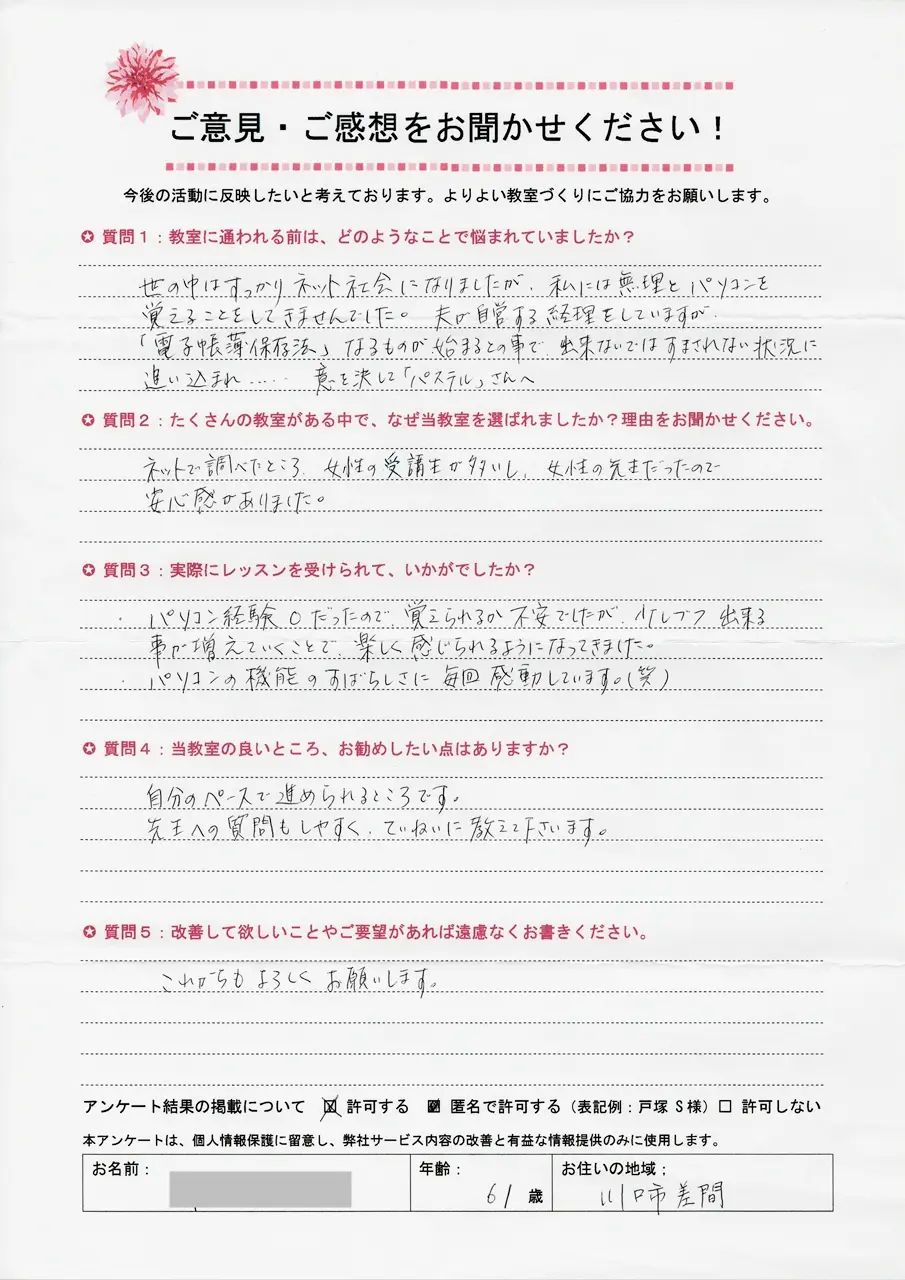 ご意見・ご感想をお聞かせください！
今後の活動に反映したいと考えております。よりよい教室づくりにご協力をお願いします。
✪ 質問１：教室に通われる前は、どのようなことで悩まれていましたか？
世の中はすっかりネット社会になりましたが、私には無理とパソコンを
覚えることをしてきませんでした。夫が自営する経理をしていますが、
「電子帳簿保存法」なるものが始まるとの事で、出来ないではすまされない状況に
追い込まれ…… 意を決して「パステル」さんへ
✪ 質問２：たくさんの教室がある中で、なぜ当教室を選ばれましたか？理由をお聞かせください。
ネットで調べたところ、女性の受講生が多いし、女性の先生だったので
安心感がありました。
✪ 質問３：実際にレッスンを受けられて、いかがでしたか？
・パソコン経験0だったので、覚えられるか不安でしたが、少しづつ出来る
事が増えていくことで、楽しく感じられるようになってきました。
・パソコンの機能のすばらしさに毎回感動しています。（笑）
✪ 質問４：当教室の良いところ、お勧めしたい点はありますか？
自分のペースで進められるところです。
先生への質問もしやすく、ていねいに教えて下さいます。
✪ 質問５：改善して欲しいことやご要望があれば遠慮なくお書きください。
これからもよろしくお願いします。
アンケート結果の掲載について ☒ 許可する ☑ 匿名で許可する（表記例：戸塚 S 様）☐ 許可しない
本アンケートは、個人情報保護に留意し、弊社サービス内容の改善と有益な情報提供のみに使用します。
お名前： 年齢： お住いの地域；
61 歳 川口市差間